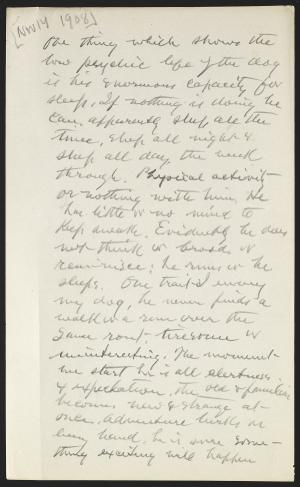 [Nov 14 1908]
One thing which shows the
low psychic life of the dog
is his enormous capacity for
sleep. If nothing is doing he
can apparently sleep all the
time, sleep all night &
sleep all day, the week
through. Physical activity
or nothing with him. He
has little or no mind to
keep awake. Evidently he does
not think or broods or
reminisce; he runs or he
sleeps. One trait I envy
my dog, he never finds a
walk or a run over the
same rout tiresome or
uninteresting. The moment
we start he is all alertness
& expectation, the old & familiar
become new & strange at
once. Adventure lurks on
every hand, he is sure some-
thing exciting will happen